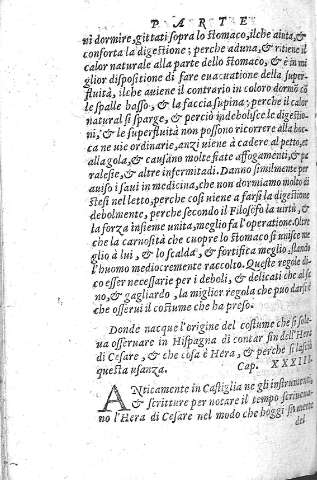 PARTE
ni dormire, gittati sopra lo stomaco, ilche aiuta, &
conforta la digestione; perche aduna, & ritiene il
calor naturale alla parte dello stomaco, & è in mi
glior dispositione di fare euacuatione della super-
fluità, ilche auiene il contrario in coloro dormō cō
le spalle basso, & la faccia supina; perche il calor
natural si sparge, & perciò indebolisce le digestio-
ni, & le superfluità non possono ricorrere alla boc-
ca ne uie ordinarie, anzi uiene à cadere al petto, et
alla gola, & causano molte fiate affogamenti, & pa
ralesie, & altre infermitadi. Danno similmente per
auiso i saui in medicina, che non dormiamo molto di
stesi nel letto, perche così uiene a farsi la digestione
debolmente, perche secondo il Filosofo la uirtù, &
la forza insieme unita, meglio fa l'operatione. Oltre
che la carnosità che cuopre lo stomaco si unisce me
glio à lui, & lo scalda, & fortifica meglio, stando
l'huomo mediocremente raccolto. Queste regole di-
co esser necessarie per i deboli, & delicati che al sa
no, & gagliardo, la miglior regola che può darsi è
che osserui il costume che ha preso.
Donde nacque l'origine del costume che si sole-
ua osseruare in Hispagna di contar fin dell'Hera
di Cesare, & che cosa è Hera, & perche si lasciò
questa usanza. Cap. XXXIII.
ANticamente in Castiglia ne gli instrumenti,
& scritture per notare il tempo scriueua-
no l'Hera di Cesare nel modo che hoggi si mette
del